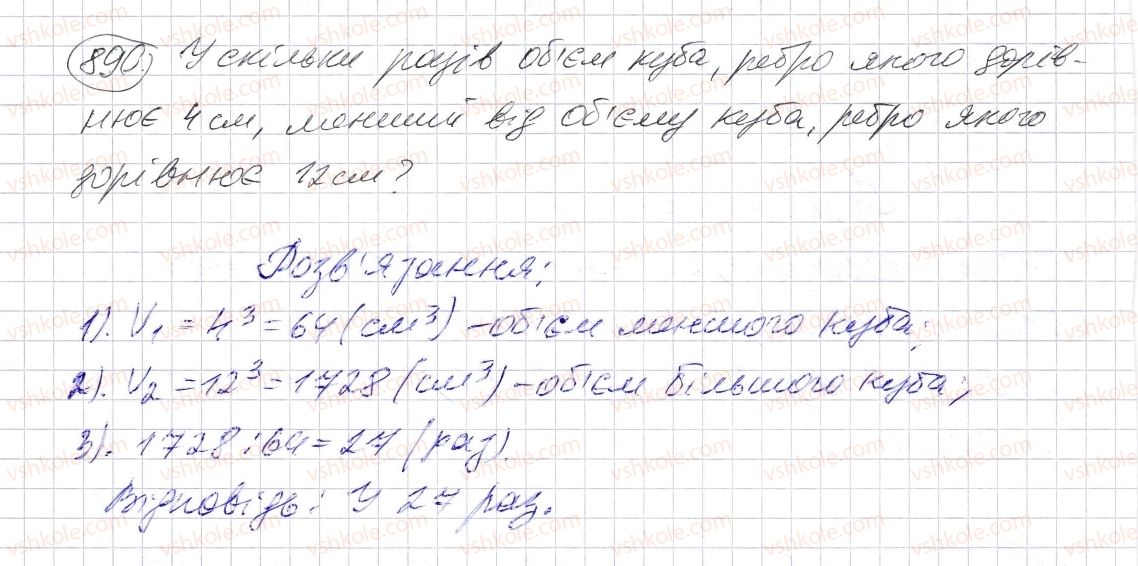 890) У скільки разів об'єм куба, ребро якого дорів-
нює 4 см, менший від об'єму куба, ребро якого
дорівнює 12 см?
Розв'язання:
1). V₁ = 4³ = 64 (см³) – об'єм меншого куба;
2). V₂ = 12³ = 1728 (см³) – об'єм більшого куба;
3). 1728 : 64 = 27 (раз).
Відповідь: У 27 раз.